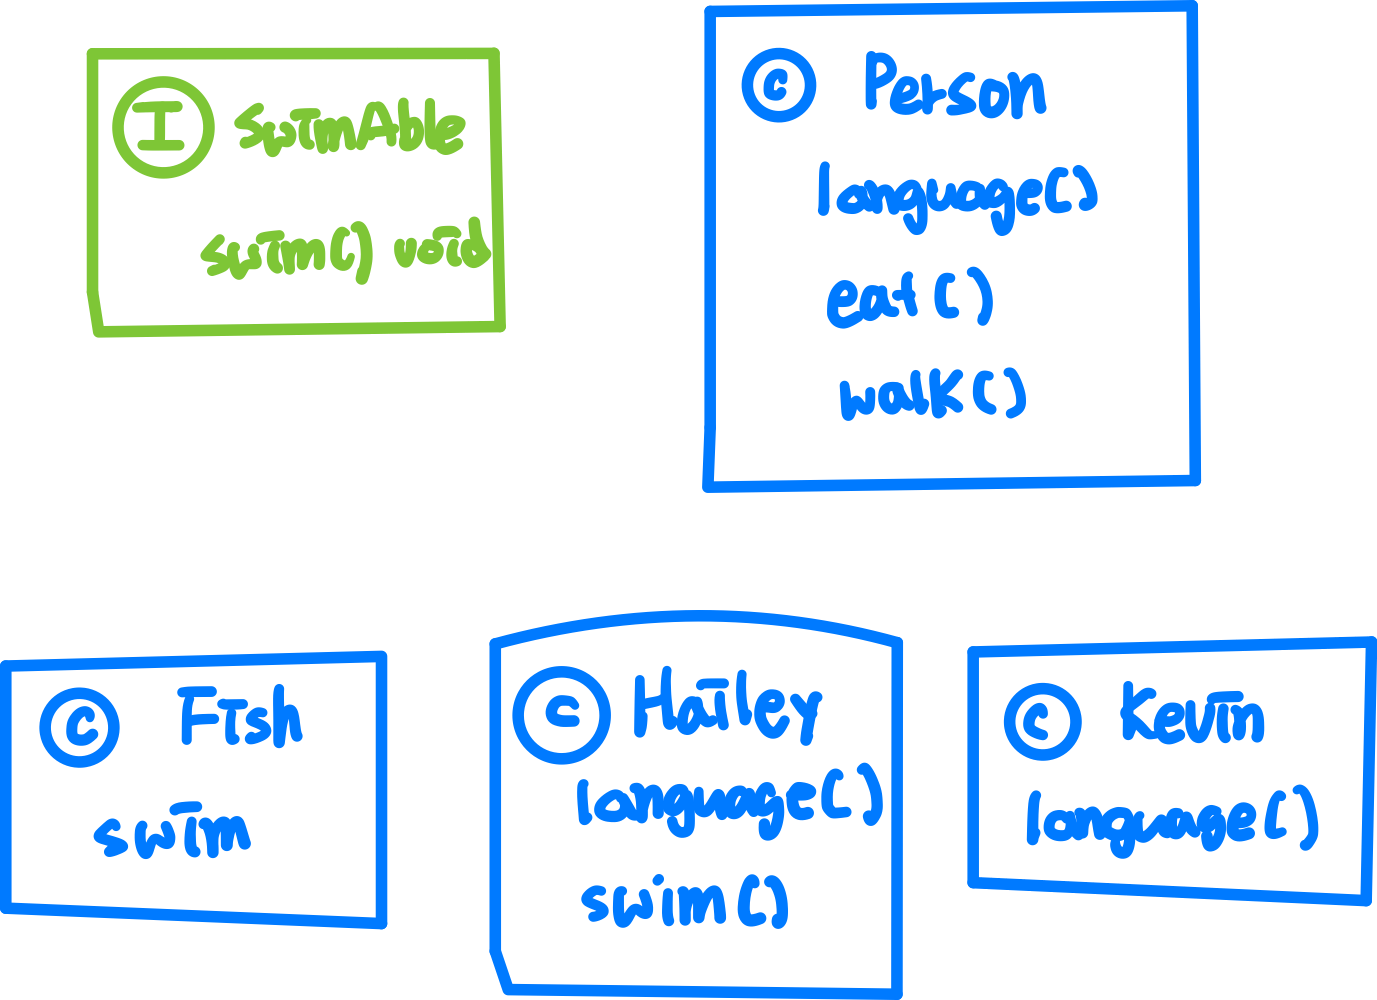 I SwimAble
swim() void
C Person
language()
eat()
walk()
C Fish
swim
C Hailey
language()
swim()
C Kevin
language()